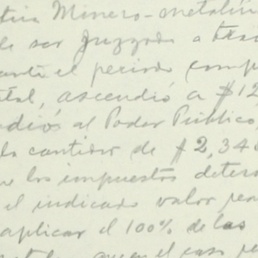 Minero-metalúr
de ser juzgada a tra
ante el periodo comp
tal, ascendió a $12
dió al Poder Público,
la cantidad de $2,34
los impuestos deter
el indicado valor
aplicar el 100% de las
que en el caso